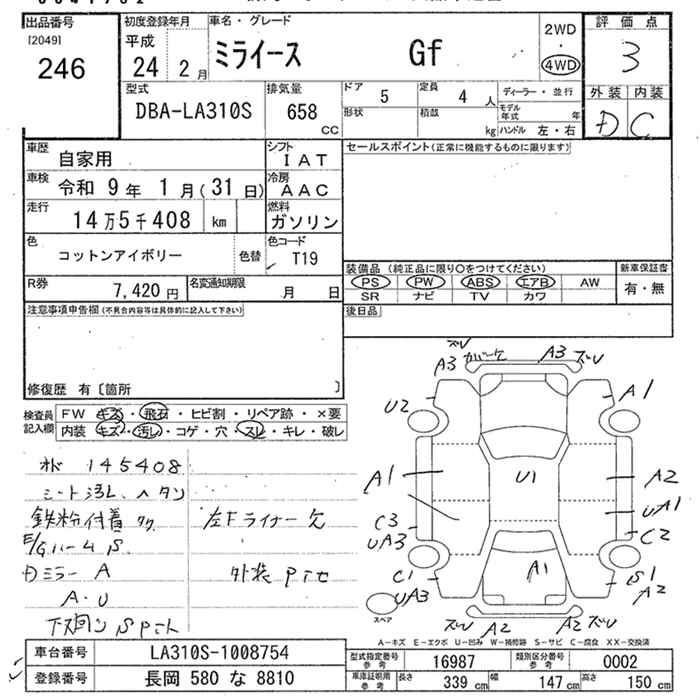 出品番号
[2049]
246
初度登録年月
平成
24 2月
車名・グレード
ミライース Gf
2WD
・
4WD
評価点
3
外装 内装
D C
型式
DBA-LA310S
排気量
658 cc
ドア 5
定員 4 人
形状
積載 kg
ディーラー・並行
モデル年式 年
ハンドル 左・右
車歴 自家用
シフト IAT
車検 令和 9年 1月(31日)
冷房 AAC
走行 14万5千408 km
燃料 ガソリン
色 コットンアイボリー
色替
色コード T19
R券 7,420円
名変通知期限 月 日
セールスポイント(正常に機能するものに限ります)
装備品 (純正品に限り○をつけてください)
PS PW ABS エアB AW
SR ナビ TV カワ
新車保証書
有・無
後日品
注意事項申告欄(不具合内容等は具体的に記入して下さい)
修復歴 有〔箇所 〕
検査員記入欄
FW キズ・飛石・ヒビ割・リペア跡・×要
内装 キズ・汚レ・コゲ・穴・スレ・キレ・破レ
145408
シート汚レ、ヘタン
鉄粉付着
左Fライナー欠
E/Gルーム S
Dミラー A
外装
A・U
下廻り S
ズレ
A3 カバー欠 A3 ズレ
U2 A1
A1 U1 A2
UA1
C3 C2
UA3
C1 A1 S1
UA3 A2
スペア
ズレ A2 A2 ズレ
A-キズ E-エクボ U-凹み W-補修跡 S-サビ C-腐食 XX-交換済
車台番号 LA310S-1008754
登録番号 長岡 580 な 8810
型式指定番号 参考 16987
類別区分番号 参考 0002
車庫証明用 参考 長さ 339 cm 幅 147 cm 高さ 150 cm